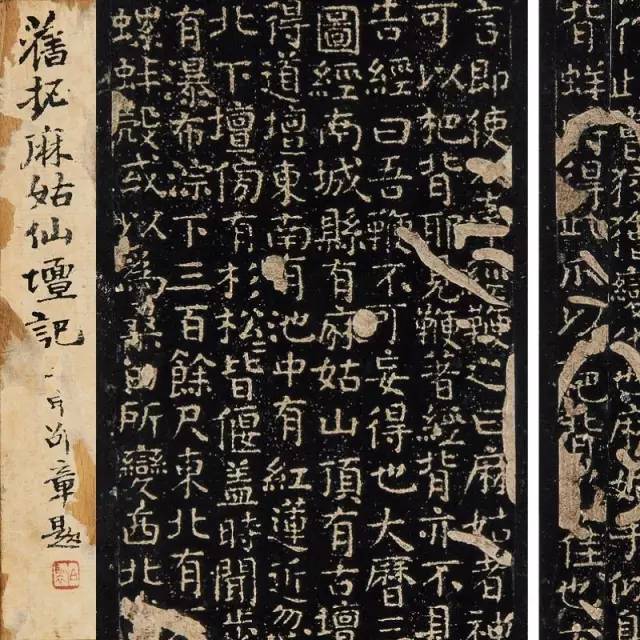 作此狡獪變也麻姑手似鳥
背蛘時得此爪以杷背佳也
言即使牽經鞭之曰麻姑者神
可以杷背耶見鞭著經背亦不見
告經曰吾鞭不可妄得也大曆三
圖經南城縣有麻姑山頂有古壇
得道壇東南有池中有紅蓮近忽
北下壇傍有杉松皆偃蓋時聞步
有瀑布淙下三百餘尺東北有
螺蚌殼或以為桑田所變西北
舊拓麻姑仙壇記
章題